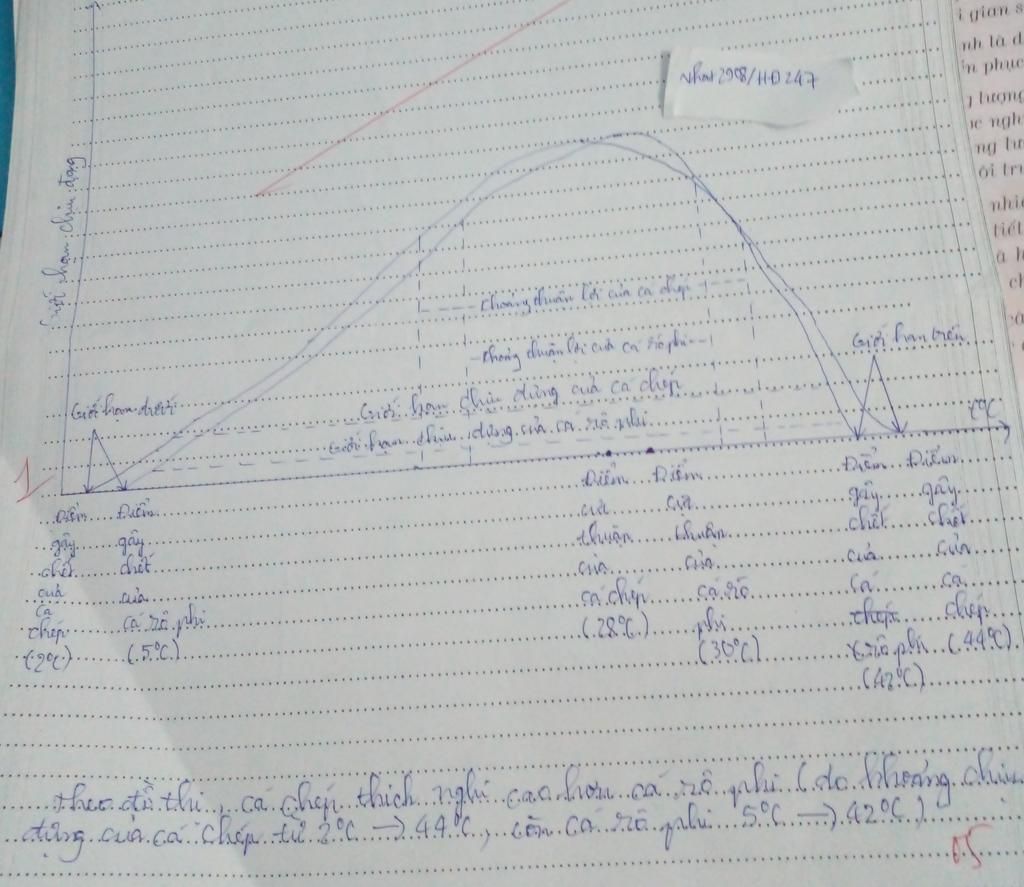 Nhat2908/HĐ247
Giới hạn chịu đựng
khoảng thuận lợi của cá chép
khoảng thuận lợi của cá rô phi
Giới hạn trên
Giới hạn dưới
Giới hạn chịu đựng của cá chép
Giới hạn chịu đựng của cá rô phi
t°C
1
Điểm gây chết của cá chép (2°C)
Điểm gây chết của cá rô phi (5°C)
Điểm cực thuận của cá chép (28°C)
Điểm cực thuận của cá rô phi (30°C)
Điểm gây chết của cá rô phi (42°C)
Điểm gây chết của cá chép (44°C)
theo đồ thị, cá chép thích nghi cao hơn cá rô phi (do khoảng chịu
đựng của cá chép từ 2°C → 44°C, còn cá rô phi 5°C → 42°C)
0.5
i gian s
nh là d
n phục
g lượng
ục ngh
ng tư
ôi trư
nhiê
tiết